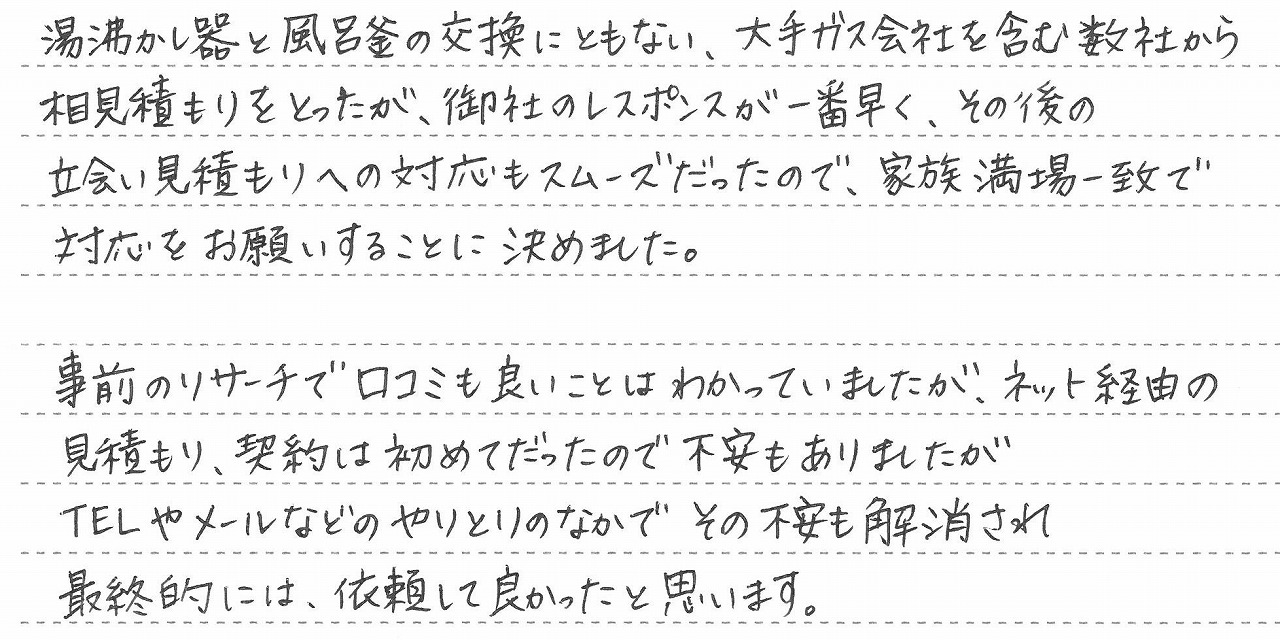 湯沸かし器と風呂釜の交換にともない、大手ガス会社を含む数社から
相見積もりをとったが、御社のレスポンスが一番早く、その後の
立会い見積もりへの対応もスムーズだったので、家族満場一致で
対応をお願いすることに決めました。
事前のリサーチで口コミも良いことはわかっていましたが、ネット経由の
見積もり、契約は初めてだったので不安もありましたが
TELやメールなどのやりとりのなかでその不安も解消され
最終的には、依頼して良かったと思います。